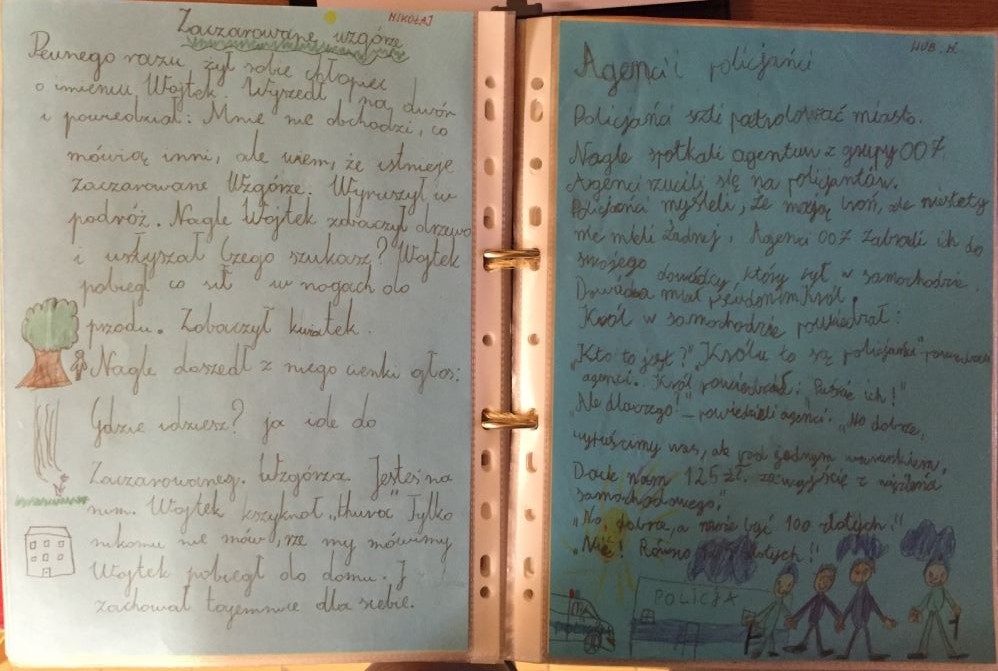 MIKOŁAJ
Zaczarowane wzgórze
Pewnego razu żył sobie chłopiec
o imieniu Wojtek. Wyszedł na dwór
i powiedział: Mnie nie obchodzi, co
mówią inni, ale wiem, że istnieje
zaczarowane Wzgórze. Wyruszył w
podróż. Nagle Wojtek zobaczył drzewo
i usłyszał Czego szukasz? Wojtek
pobiegł co sił w nogach do
przodu. Zobaczył kwiatek.
Nagle doszedł z niego cienki głos:
Gdzie idziesz? ja ide do
Zaczarowaneg. Wzgórza. Jesteś na
nim. Wojtek kszyknoł „Hura" Tylko
nikomu nie mów, rze my mówimy
Wojtek pobiegł do domu. I
zachował tajemnice dla siebie.
HUB. K.
Agenci i policjańci
Policjańci szli patrolować miasto.
Nagle spotkali agentuw z grupy 007.
Agenci rzucili się na policjantów.
Policjańci myśleli, że mają broń, ale niestety
nie mieli żadnej. Agenci 007 zabrali ich do
swojego dowódcy, który żył w samochodzie.
Dowódca miał pseudonim Król.
Król w samochodzie powiedział:
„Kto to jest?" „Królu to są policjańci"
agenci. Król powiedział: Puśćcie ich!"
„Ne dlaczego!" – powiedzieli agenci. „No dobrze,
wypuścimy was, ale pod jednym warunkiem,
Dacie nam 125 zł. za wyjście z więzienia
samochodowego."
„No, dobrze, a może być 100 złotych."
„Nie! Równo złotych!"
POLICJA